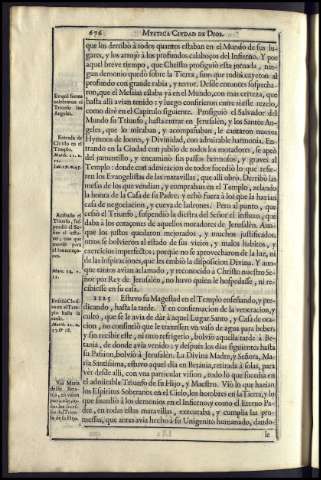 676
MYSTICA CIUDAD DE DIOS.
que los derribò à todos quantos estaban en el Mundo de sus lu-
gares, y los arrojò à los profundos calabozos del Infierno. Y por
aquel breve tiempo, que Christo prosiguiò esta jornada, nin-
gun demonio quedò sobre la Tierra, sino que todos cayeron al
profundo con grande rabia, y terror. Desde entonces sospecha-
ron, que el Mesias estaba yà en el Mundo, con mas certeza, que
hasta alli avian tenido; y luego confirieron entre si este rezelo,
como dirè en el Capitulo siguiente. Prosiguiò el Salvador del
Mundo su Triunfo, hasta entrar en Jerusalèn, y los Santos Ange-
les, que lo miraban, y acompañaban, le cantaron nuevos
Hymnos de loores, y Divinidad, con admirable harmonia. En-
trando en la Ciudad con jubilo de todos los moradores, se apeò
del jumentillo, y encaminò sus passos hermosos, y graves al
Templo: donde con admiracion de todos sucediò lo que refie-
ren los Evangelistas de las maravillas, que alli obrò. Derribò las
mesas de los que vendian, y compraban en el Templo, zelando
la honra de la Casa de su Padre; y echò fuera à los que la hazian
casa de negociacion, y cueva de ladrones. Pero al punto, que
cesò el Triunfo, suspendiò la diestra del Señor el influxo, que
daba à los coraçones de aquellos moradores de Jerusalèn. Aun-
que los justos quedaron mejorados, y muchos justificados:
otros se bolvieron al estado de sus vicios, y malos habitos, y
exercicios imperfectos, porque no se aprovecharon de la luz, ni
de las inspiraciones, que les embiò la disposicion Divina. Y aun-
que tantos avian aclamado, y reconocido à Christo nuestro Se-
ñor por Rey de Jerusalèn, no huvo quien le hospedasse, ni re-
cibiesse en su casa.
1125 Estuvo su Magestad en el Templo enseñando, y pre-
dicando, hasta la tarde. Y en confirmacion de la veneracion, y
culto, que se le avia de dàr à aquel Lugar Santo, y Casa de ora-
cion, no consintiò que le traxessen un vaso de agua para beber;
y sin recibir este, ni otro refrigerio, bolviò aquella tarde à Be-
tania, de donde avia venido: y despues los dias siguientes hasta
su Passion, bolviò à Jerusalèn. La Divina Madre, y Señora, Ma-
ria Santissima, estuvo aquel dia en Betania, retirada à solas, para
vèr desde alli, con una particular vision, todo lo que sucedia en
el admirable Triunfo de su Hijo, y Maestro. Viò lo que hazian
los Espiritus Soberanos en el Cielo, los hombres en la Tierra, y lo
que sucediò à los demonios en el Infierno, y como el Eterno Pa-
dre, en todas estas maravillas, executaba, y cumplia las pro-
messas, que antes avia hecho à su Unigenito humanado, dando-
le
Entrada de
Christo en el
Templo.